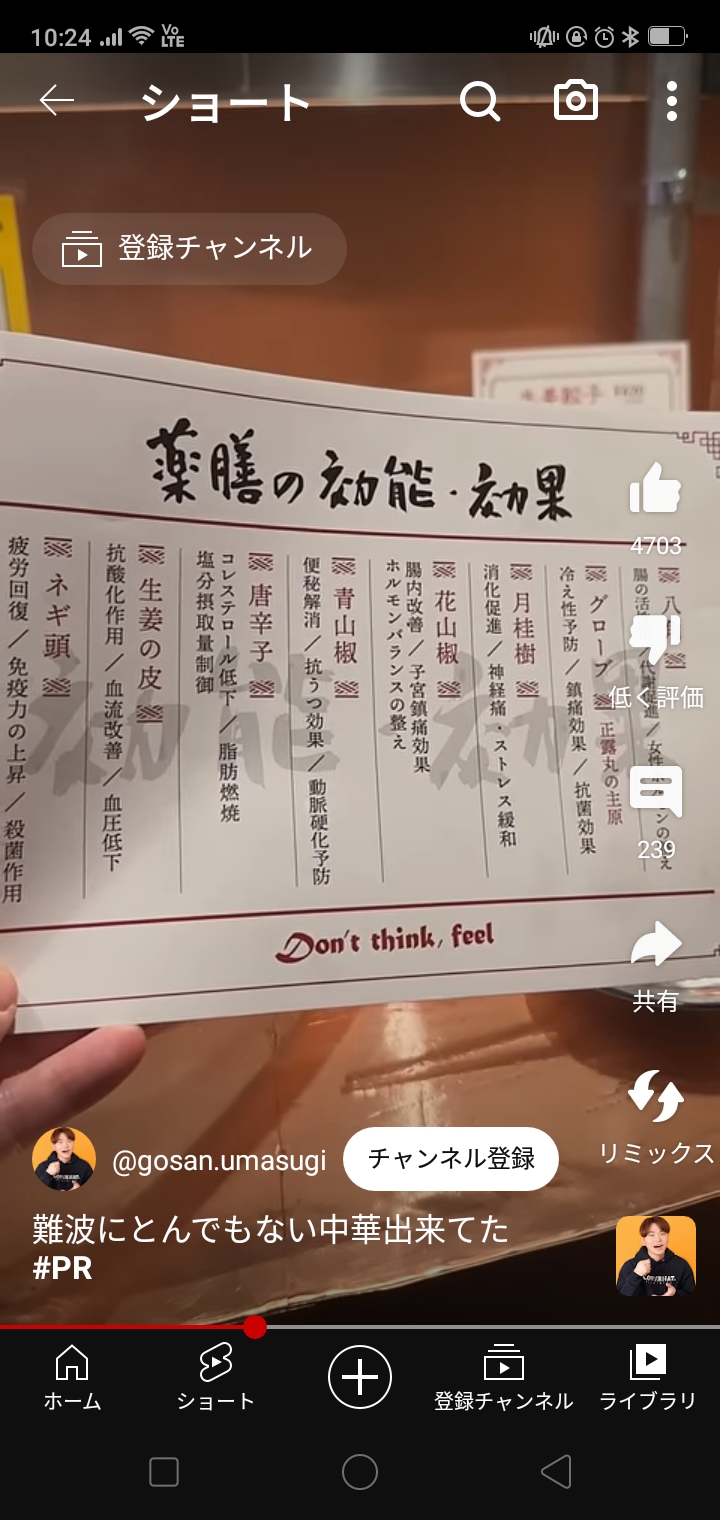 10:24
Vo
LTE
ショート
登録チャンネル
薬膳の効能・効果
八
グローブ
正露丸の主原
冷え性予防／鎮痛効果／抗菌効果
月桂樹
消化促進／神経痛・ストレス緩和
花山椒
腸内改善／子宮鎮痛効果
ホルモンバランスの整え
青山椒
便秘解消／抗うつ効果／動脈硬化予防
唐辛子
コレステロール低下／脂肪燃焼
塩分摂取量制御
生姜の皮
抗酸化作用／血流改善／血圧低下
ネギ頭
疲労回復／免疫力の上昇／殺菌作用
効能・効果
Don't think, feel
4703
低く評価
239
共有
リミックス
@gosan.umasugi
チャンネル登録
難波にとんでもない中華出来てた
#PR
ホーム
ショート
登録チャンネル
ライブラリ